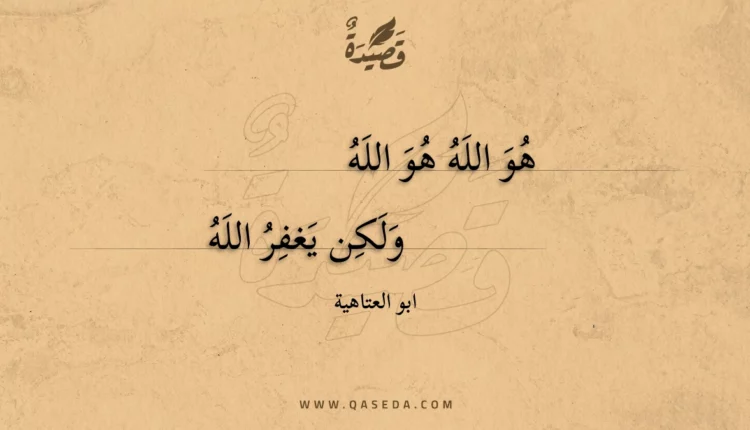 قَصِيدَةٌ
هُوَ اللَهُ هُوَ اللَهُ
وَلَكِن يَغفِرُ اللَهُ
ابو العتاهية
WWW.QASEDA.COM